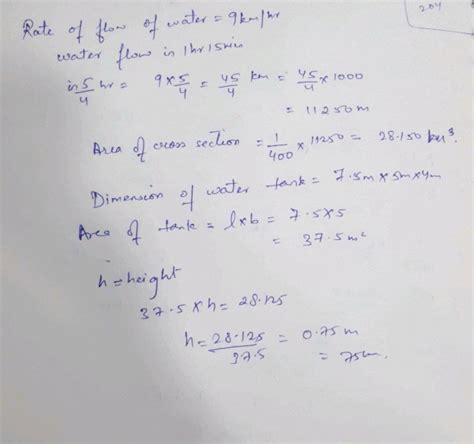 204
Rate of flow of water = 9km/hr
water flow in 1hr 15min
in 5/4 hr = 9×5/4 = 45/4 km = 45/4 × 1000
= 11250m
Area of cross section = 1/400 × 11250 = 28.150 km³.
Dimension of water tank = 7.5m×5m×4m
Area of tank = l×b = 7.5×5
= 37.5m²
h = height
37.5 × h = 28.125
h = 28.125/37.5 = 0.75m
= 75cm.